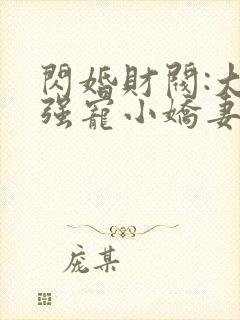 閃婚財閥:大
强寵小嬌妻
庞某